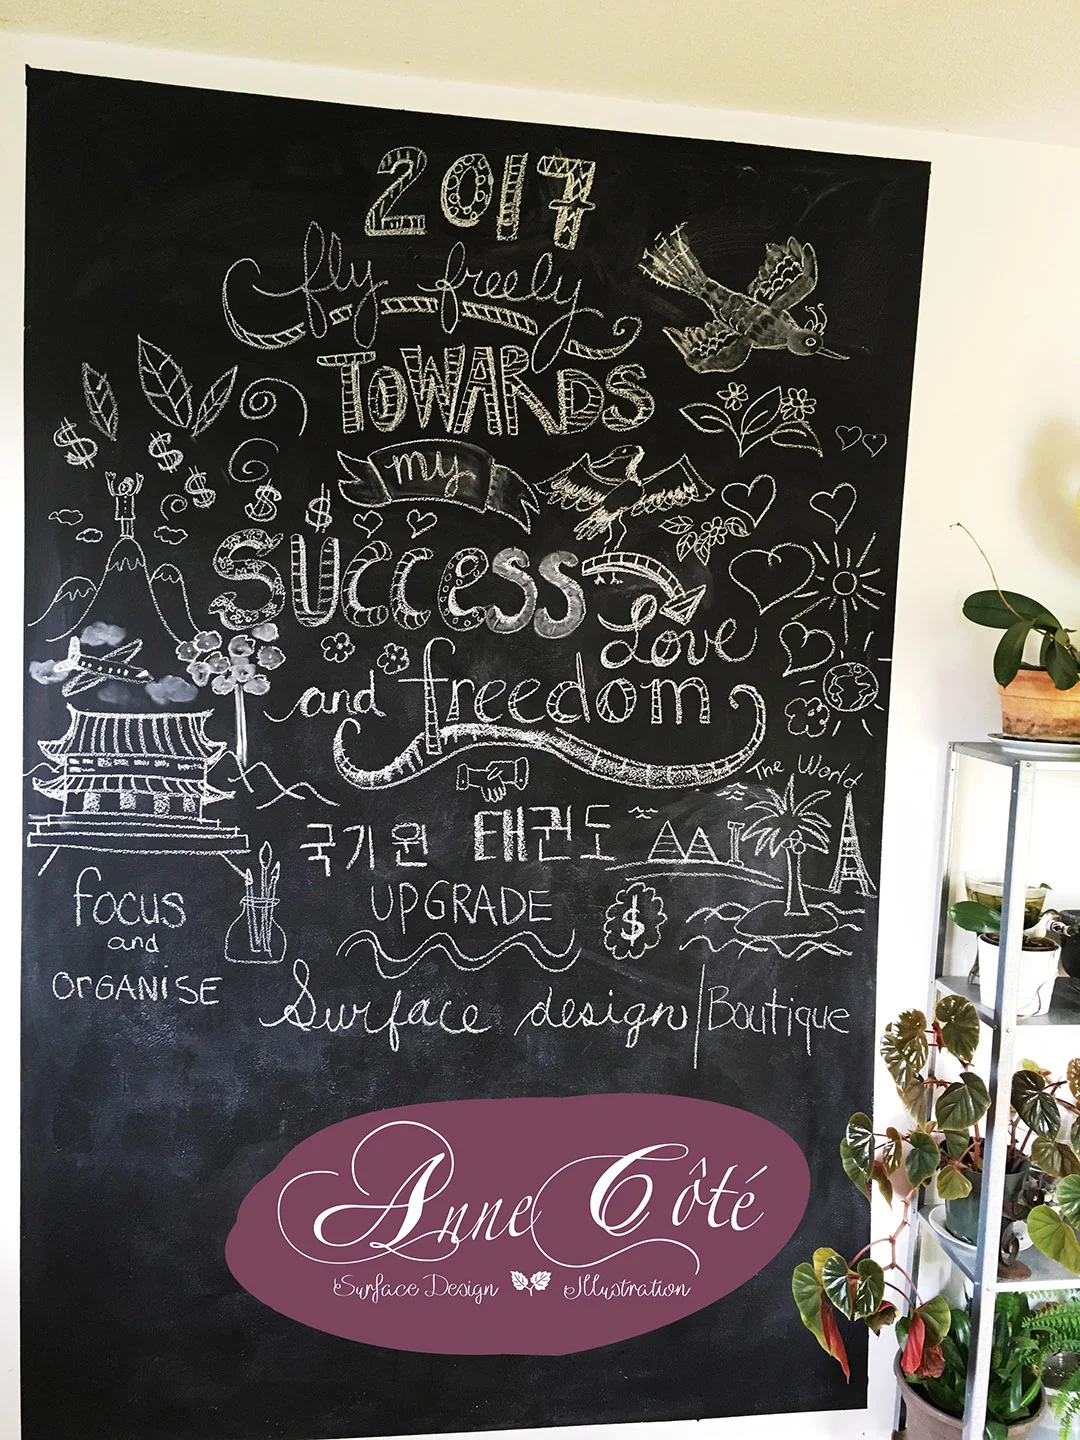 2017
fly freely
TOWARDS
my
$ $ $ $ $
SUCCESS
Love
and freedom
The World
국기원 태권도
UPGRADE
$
focus
and
ORGANISE
Surface design | Boutique
Anne Côté
Surface Design Illustration